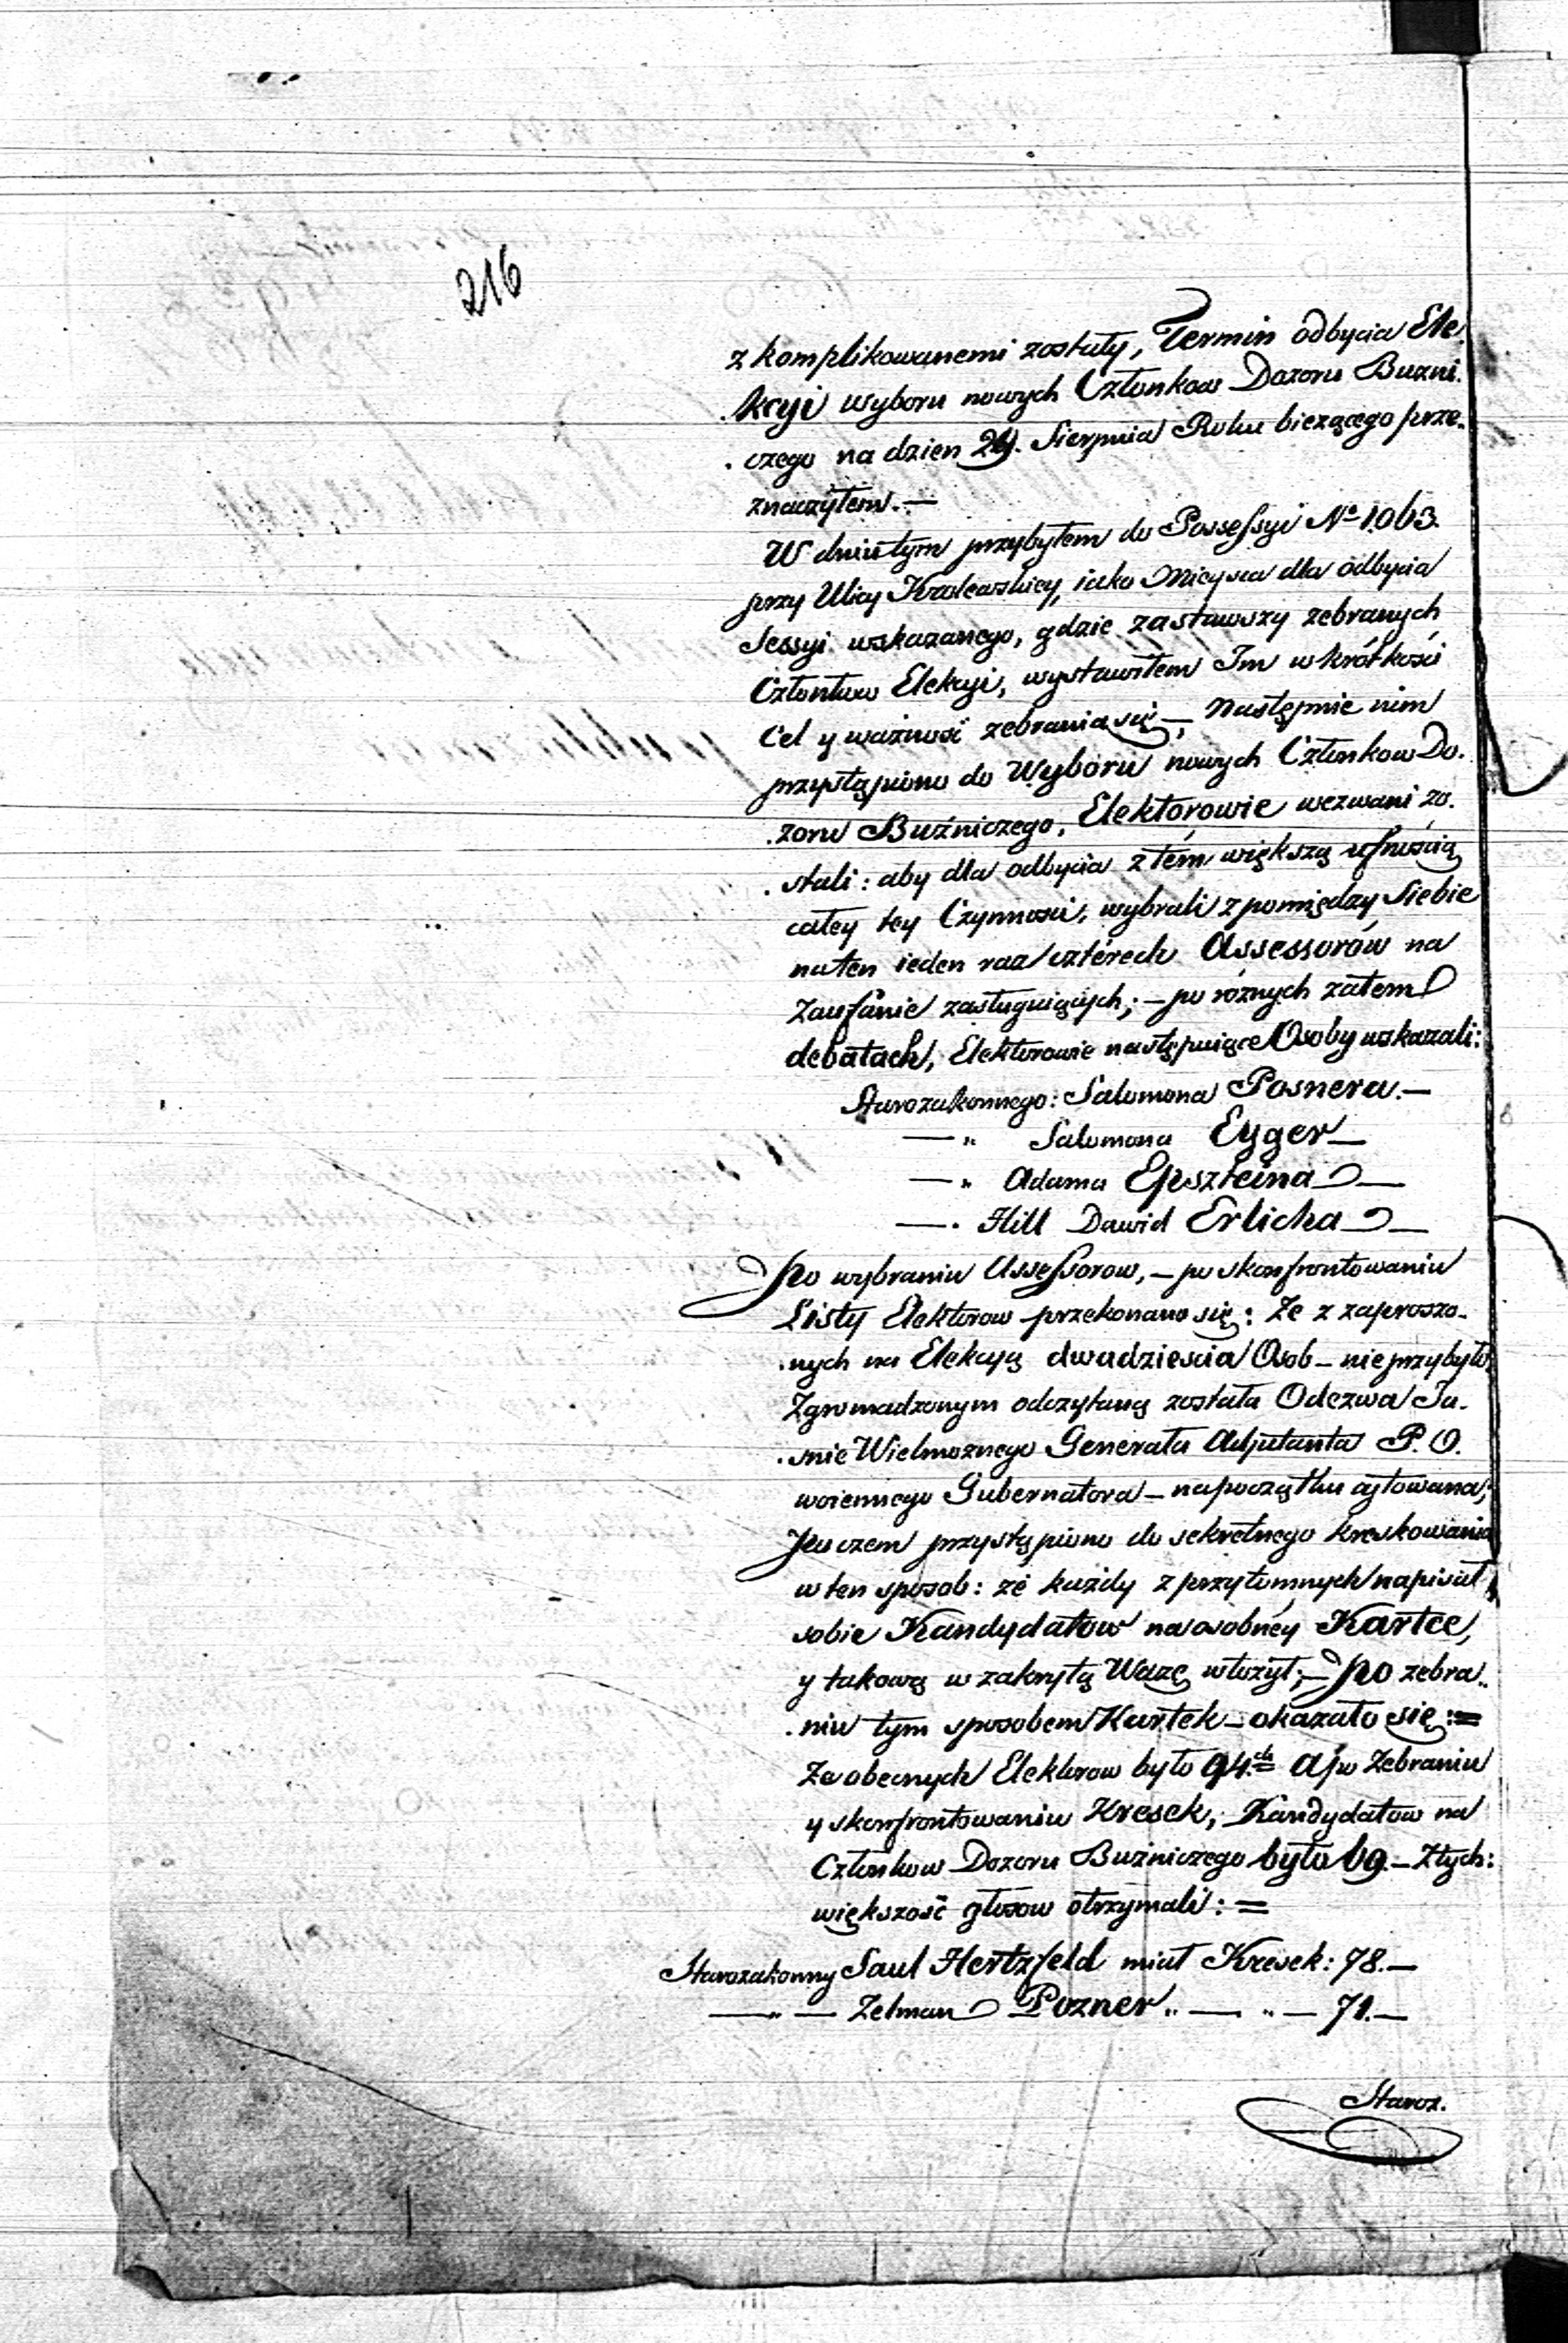 216
z komplikowanemi zostały, Termin odbycia Ele.
.kcyi wyboru nowych Członkow Dozoru Buzni.
.czego na dzien 29. Sierpnia Roku biezącego prze.
znaczyłem.—
W dniu tym przybyłem do Possessyi No 1063.
przy Ulicy Krolewskiey, iako Mieysca dla odbycia
Sessyi wskazanego, gdzie zastawszy zebranych
Członkow Elekcyi, wystawiłem Im w krótkości
Cel y ważność zebrania się—, Następnie nim
przystąpiono do Wyboru nowych Członkow Do.
.zoru Buźniczego, Elektorowie wezwani zo.
.stali: aby dla odbycia z tém większą ufnością
całey tey Czynności, wybrali z pomiędzy Siebie
na ten ieden raz cztérech Assessorów na
Zaufanie zasługuiących;— po róznych zatem
debatach, Elektorowie następuiące Osoby wskazali:
Starozakonnego: Salomona Posnera.—
—„ Salomona Eyger—
—„ Adama Epszteina—
—. Hill Dawid Erlicha—
Po wybraniu Assessorow,— po skonfrontowaniu
Listy Elektorow przekonano się: Ze z zaproszo.
.nych na Elekcyą dwadziescia Osob— nieprzybyło,
Zgromadzonym odczytaną została Odezwa Ja.
.snie Wielmoznego Generała Adjutanta P. O.
woiennego Gubernatora— na początku cytowana;
Po czem przystąpiono do sekretnego kreskowania
w ten sposob: ze każdy z przytomnych napisał
sobie Kandydatow na osobnéy Kartce,
y takową w zakrytą Wazę włozył;— Po zebra..
.niu tym sposobem Kartek— okazało się:=
Ze obecnych Elektorow było 94.ch A po Zebraniu
y skonfrontowaniu Kresek, Kandydatow na
Członkow Dozoru Buzniczego było 69.— Z tych:
większość głosow otrzymali:=
Starozakonny Saul Hertzfeld miał Kresek: 78.—
—„— Zelman Pozner„—„— 71.—
Staroz.